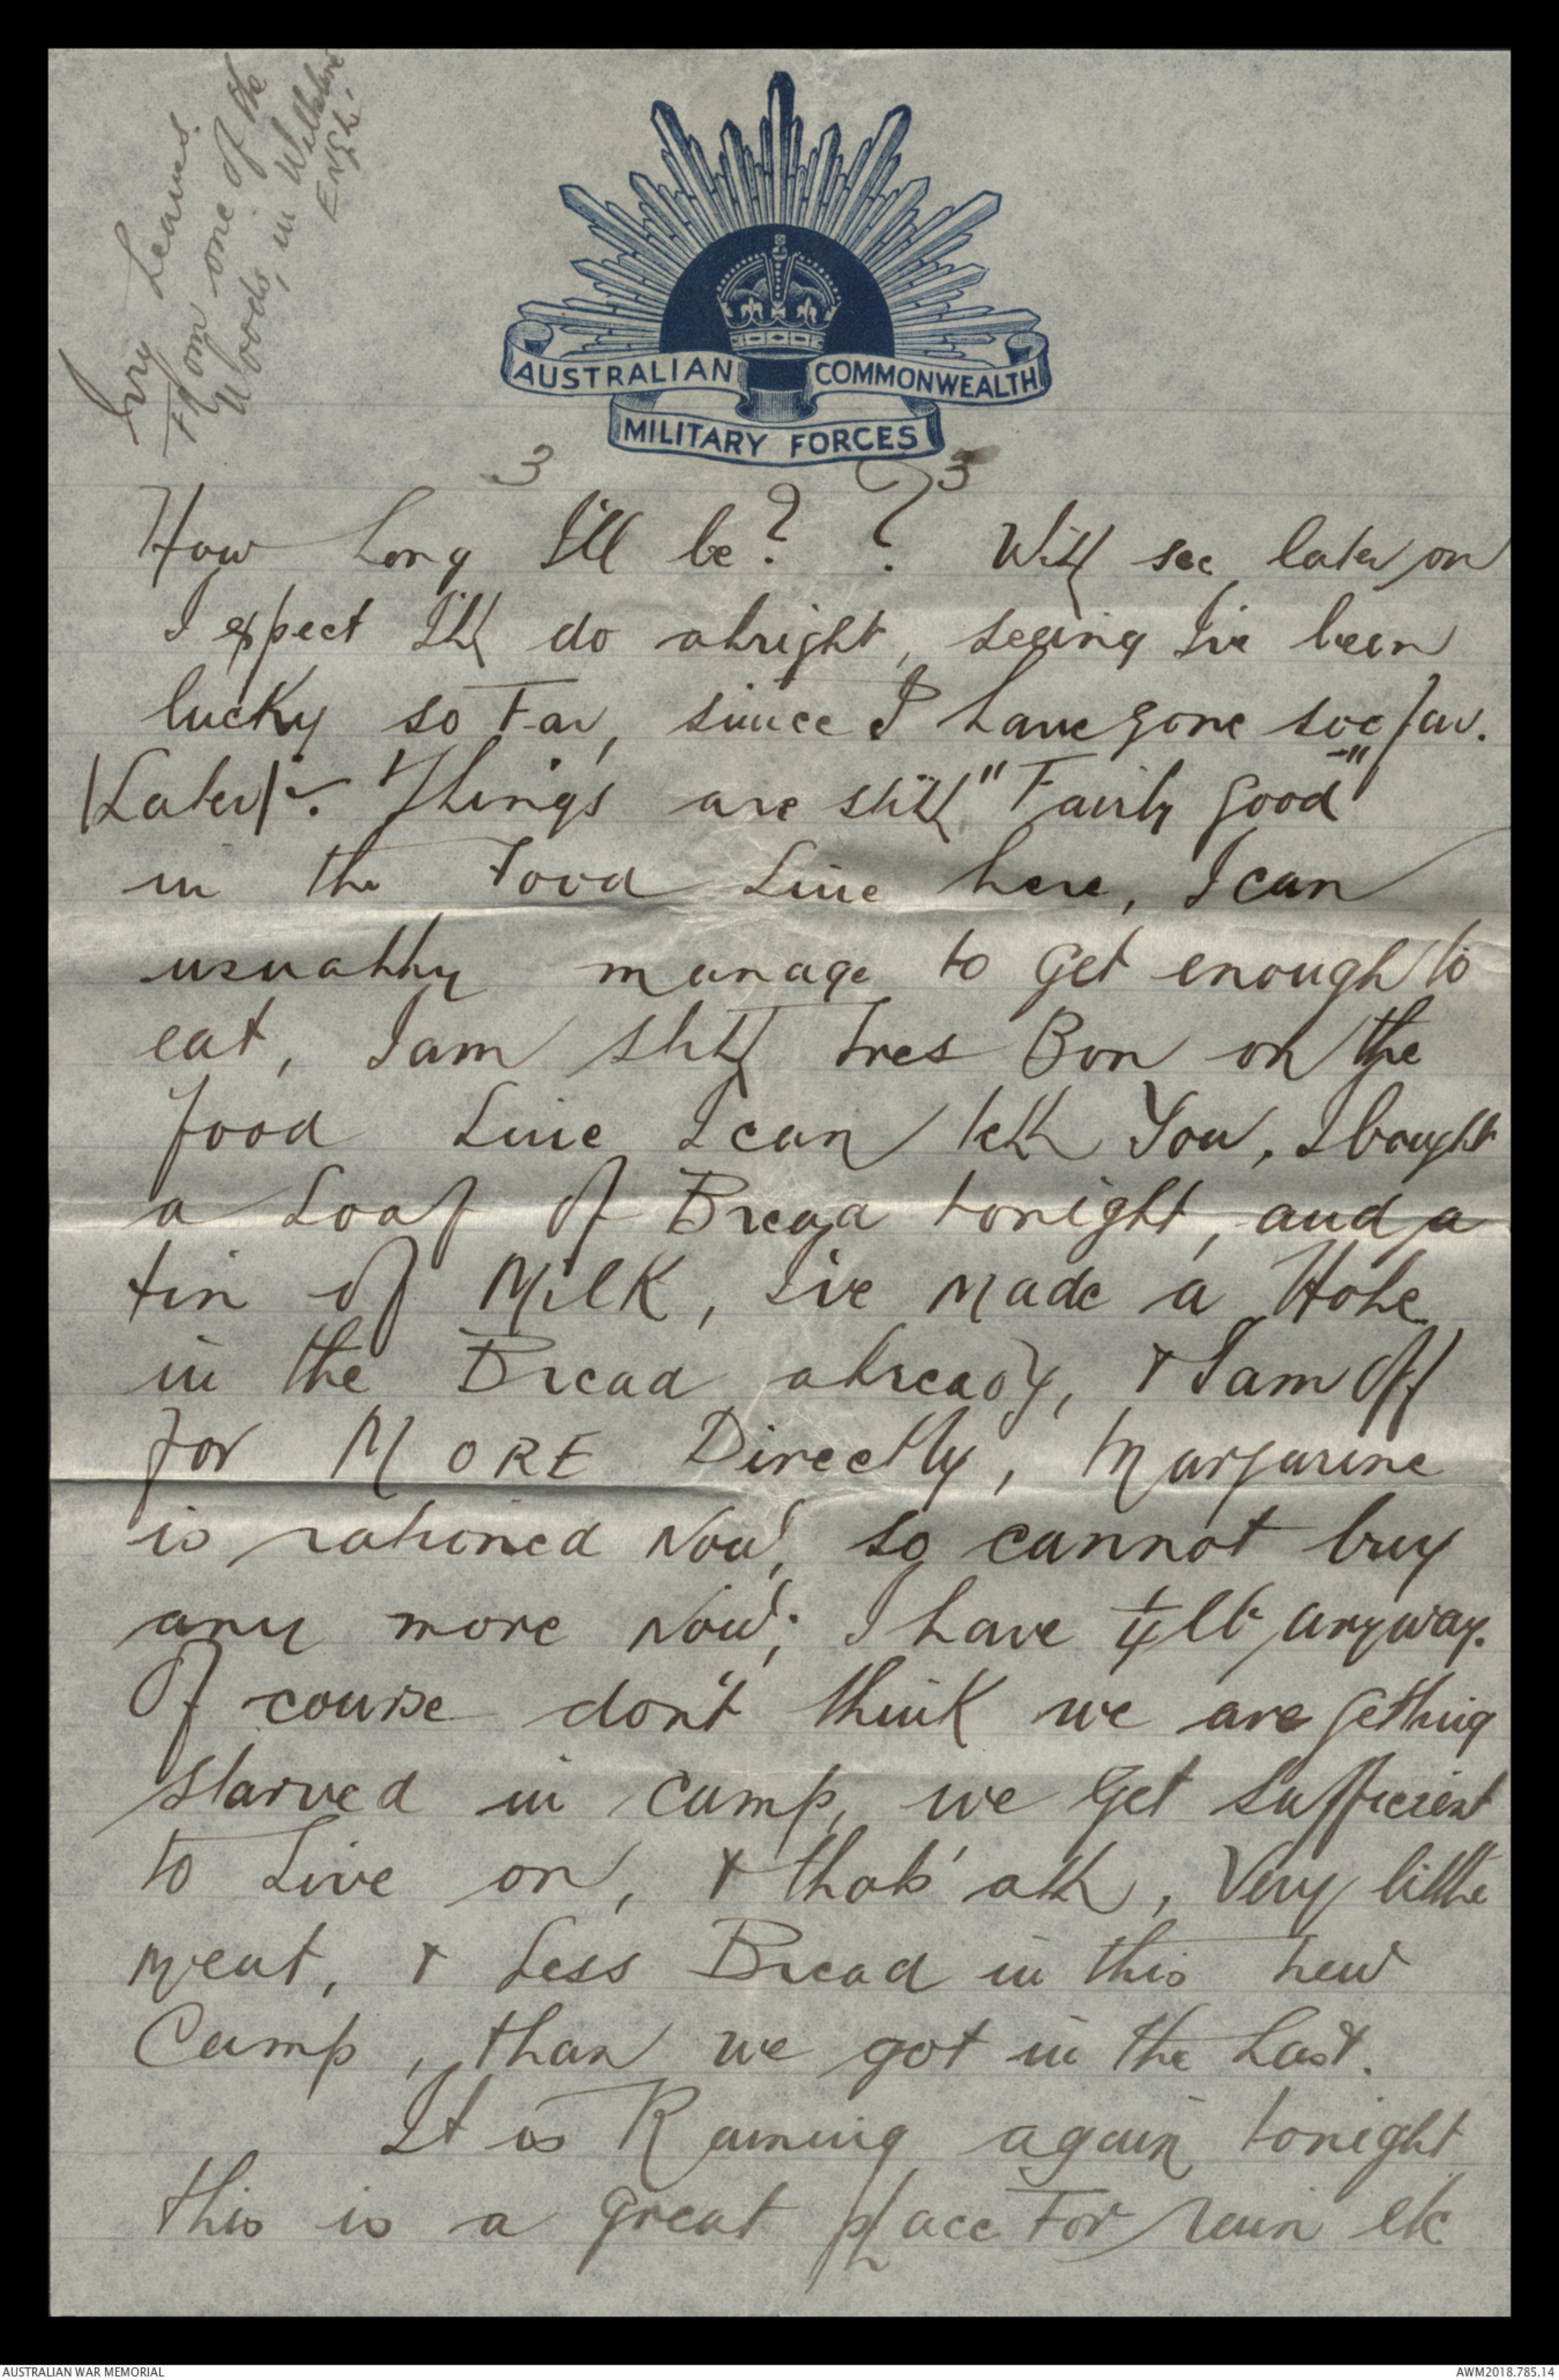 Ivy Leaves.
From one of the
Woods, in Wiltshire
Engl.
AUSTRALIAN COMMONWEALTH
MILITARY FORCES
3 3
How Long I'll be? ? Will see later on
I expect I'll do alright, seeing I've been
lucky so Far, since I have gone soe far.
(Later):- Things are still "Fairly Good"
in the Food Line here, I can
usually manage to get enough to
eat, I am still Tres Bon on the
food Line I can tell You, I bought
a Loaf of Bread tonight, and a
tin of Milk, I've made a Hole
in the Bread already, & I am off
for MORE Directly, Margarine
is rationed Now, so cannot buy
any more Now; I have ¼lb anyway.
Of course don't think we are getting
starved in camp, we get sufficient
to Live on, & thats' all, Very little
meat, & Less Bread in this new
Camp, than we got in the Last.
It is Raining again tonight
this is a great place For rain etc
AUSTRALIAN WAR MEMORIAL AWM2018.785.14